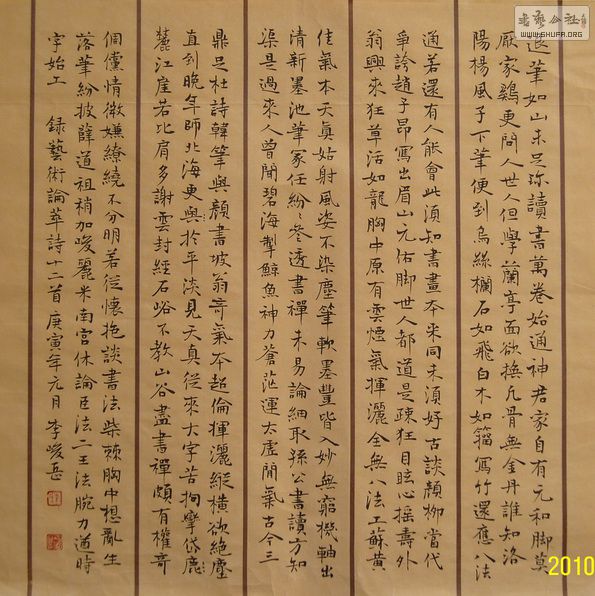 書藝公社
WWW.SHUFA.ORG
退筆如山未足珍讀書萬卷始通神君家自有元和脚莫
厭家鷄更問人世人但學蘭亭面欲換凡骨無金丹誰知洛
陽楊風子下筆便到烏絲欄石如飛白木如籀寫竹還應八法
通若還有人能會此須知書畫本来同未須好古談顏柳當代
爭誇趙子昂寫出眉山元佑脚世人都道是疎狂目眩心摇壽外
翁興來狂草活如龍胸中原有雲煙氣揮灑全無八法工蘇黄
佳氣本天真姑射風姿不染塵筆軟墨豐皆入妙無窮機軸出
清新墨池筆冢任紛〻參透書禪未易論細取孫公書讀方知
渠是過來人曾聞碧海掣鯨魚神力蒼茫運太虛閒氣古今三
鼎足杜詩韓筆與顏書坡翁奇氣本超倫揮灑縱橫欲絕塵
直到晚年師北海更與於平淡見天真從來大字苦拘攣岱鹿
麓江崖若比肩多謝雲封經石峪不教山谷盡書禪頗有權奇
倜儻情微嫌繚繞不分明若從懷抱談書法柴棘胸中想亂生
落筆紛披薛道祖稍加峻麗米南宮休論臣法二王法腕力遒時
字始工 録藝術論萃詩十二首庚寅年元月李峻岳
2010